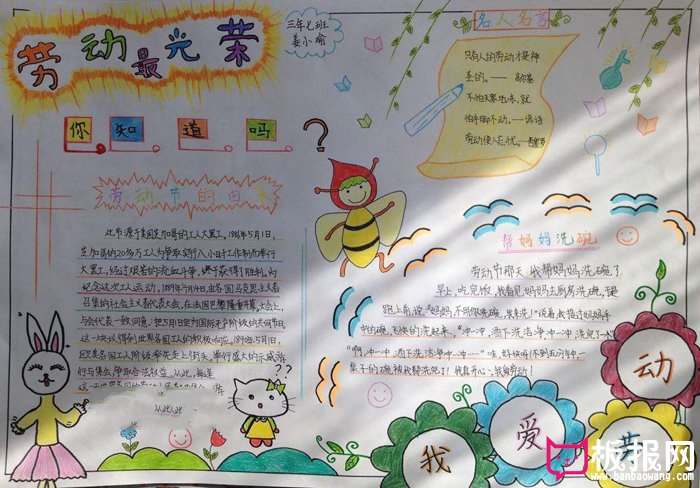 劳动最光荣
三年七班
姜小瑜
名人名言
只有人的劳动才是神
圣的。——高尔基
不怕天寒地冻,就
怕手脚不动。——谚语
劳动使人忘忧。——西塞罗
你知道吗?
劳动节的由来
此节源于美国芝加哥的工人大罢工。1886年5月1日,
芝加哥的20多万工人为争取实行八小时工作制而举行
大罢工,经过艰苦的流血斗争,终于获得了胜利。为
纪念这次工人运动,1889年7月14日,由各国马克思主义者
召集的社会主义者代表大会,在法国巴黎隆重开幕。大会上,
与会代表一致同意:把5月1日定为国际无产阶级的共同节日。
这一决议得到世界各国工人的积极响应。1890年5月1日,
欧美各国工人阶级率先走上街头,举行盛大的示威游
行与集会,争取合法权益。从此,每逢
帮妈妈洗碗
劳动节那天,我帮妈妈洗碗了。
早上,吃完饭,我看见妈妈去厨房洗碗,于是
跑上前说:“妈妈,不用你来洗,我来洗!”说着就抢过妈妈手
中的碗,飞快的洗起来。
桌子的碗被我轻洗完了!我真开心,我爱劳动!
??
我爱劳动
板报网
www.banbaowang.com